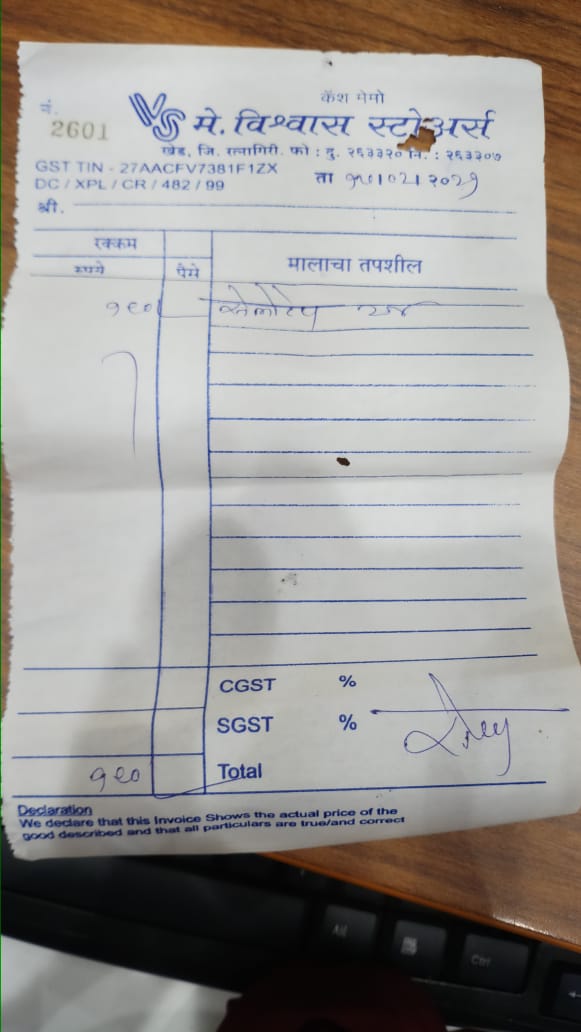 कॅश मेमो
नं.
2601
VS मे. विश्वास स्टोअर्स
खेड, जि. रत्नागिरी. फो : दु. २६३३२० नि. : २६३३०७
GST TIN - 27AACFV7381F1ZX
DC / XPL / CR / 482 / 99
ता
श्री.
रक्कम
रुपये पैसे मालाचा तपशील
सेलोटेप
CGST %
SGST %
Total
Declaration
We declare that this Invoice Shows the actual price of the
good described and that all particulars are true/and correct
Alt
Ctrl